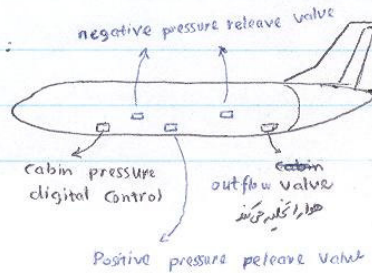 negative pressure releave valve
cabin pressure
digital control
cabin
outflow valve
هوا را تخلیه می‌کند
Positive pressure peleave valve